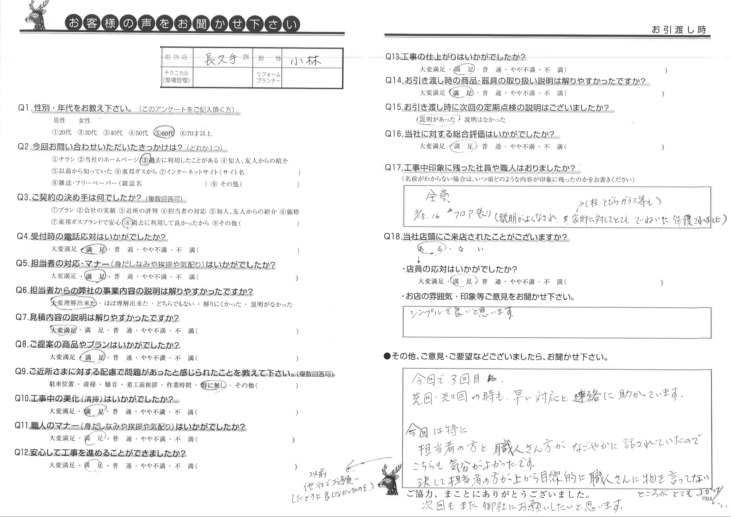 お客様の声をお聞かせ下さい
担当店 長久手 担当 小林
テクニカル(現場管理) リフォームプランナー
Q1.性別・年代をお教え下さい。(このアンケートをご記入頂く方)
男性 女性
①20代 ②30代 ③40代 ④50代 ⑤60代 ⑥70才以上
Q2.今回お問い合わせいただいたきっかけは?(どれか1つ)
①チラシ ②当社のホームページ ③過去に利用したことがある ④知人、友人からの紹介
⑤以前から知っていた ⑥東邦ガスから ⑦インターネットサイト(サイト名 )
⑧雑誌・フリーペーパー(雑誌名 ) ⑨その他( )
Q3.ご契約の決め手は何でしたか?(複数回答可)
①プラン ②会社の実績 ③近所の評判 ④担当者の対応 ⑤知人、友人からの紹介 ⑥価格
⑦東邦ガスブランドで安心 ⑧過去に利用して良かったから ⑨その他( )
Q4.受付時の電話応対はいかがでしたか?
大変満足・満 足・普 通・やや不満・不 満( )
Q5.担当者の対応・マナー(身だしなみや挨拶や気配り)はいかがでしたか?
大変満足・満 足・普 通・やや不満・不 満( )
Q6.担当者からの弊社の事業内容の説明は解りやすかったですか?
大変理解出来た・ほぼ理解出来た・どちらでもない・解りにくかった・説明がなかった
Q7.見積内容の説明は解りやすかったですか?
大変満足・満 足・普 通・やや不満・不 満( )
Q8.ご提案の商品やプランはいかがでしたか?
大変満足・満 足・普 通・やや不満・不 満( )
Q9.ご近所さまに対する配慮で問題があったと感じられたことを教えて下さい。(複数回答可)
駐車位置・清掃・騒音・着工前挨拶・作業時間・特に無し・その他( )
Q10.工事中の美化(清掃)はいかがでしたか?
大変満足・満 足・普 通・やや不満・不 満( )
Q11.職人のマナー(身だしなみや挨拶や気配り)はいかがでしたか?
大変満足・満 足・普 通・やや不満・不 満( )
Q12.安心して工事を進めることができましたか?
大変満足・満 足・普 通・やや不満・不 満( )
以前
お引渡し時
Q13.工事の仕上がりはいかがでしたか?
大変満足・満 足・普 通・やや不満・不 満( )
Q14.お引き渡し時の商品・器具の取り扱い説明は解りやすかったですか?
大変満足・満 足・普 通・やや不満・不 満( )
Q15.お引き渡し時に次回の定期点検の説明はございましたか?
説明があった・説明はなかった
Q16.当社に対する総合評価はいかがでしたか?
大変満足・満 足・普 通・やや不満・不 満( )
Q17.工事中印象に残った社員や職人はおりましたか?
(名前がわからない場合は、いつ頃どのような内容が印象に残ったのかをお書きください)
全員
Q18.当社店頭にご来店されたことがございますか?
あ る・な い
・店員の応対はいかがでしたか?
大変満足・満 足・普 通・やや不満・不 満( )
・お店の雰囲気・印象等ご意見をお聞かせ下さい。
シンプルで良いと思います
●その他、ご意見・ご要望などございましたら、お聞かせ下さい。
今回で3回目
先回・先々回の時も、早い対応と連絡に助かっています。
今回は特に
担当者の方と職人さん方がなごやかに話されていたので
こちらも気分がよかったです。
決して担当者の方が上から目線的に職人さんに物を言ってない
ところがとても
ご協力、まことにありがとうございました。
次回もまた御社にお願いしたいと思います。